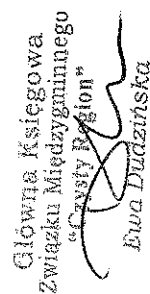 Główna Księgowa
Związku Międzygminnego
"Czysty Region"
Ewa Dudzińska